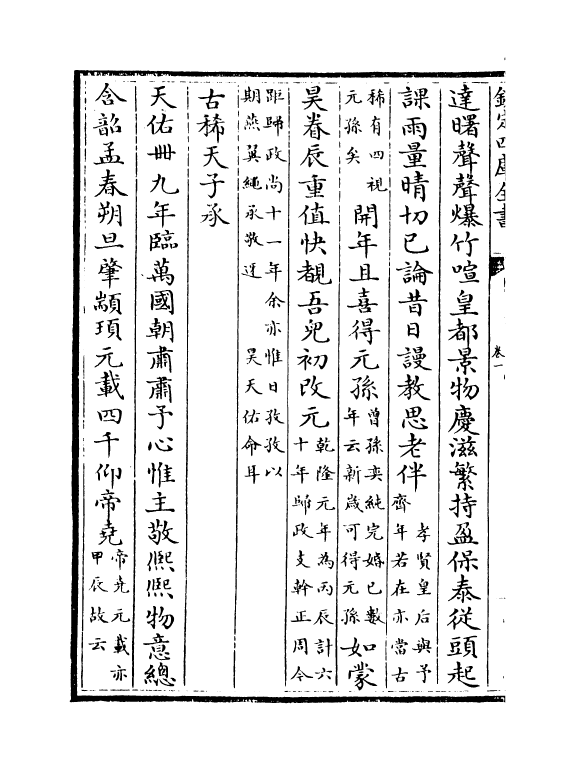 欽定四庫全書
卷一
達曙聲聲爆竹喧皇都景物慶滋繁持盈保泰從頭起
課雨量晴切已論昔日謾教思老伴
孝賢皇后與予
齊年若在亦當古
稀有四視
元孫矣
開年且喜得元孫
曾孫奕純完婚已數
年云新歲可得元孫
如蒙
昊眷辰重值快覩吾兒初改元
乾隆元年為丙辰計六
十年歸政支幹正周今
距歸政尚十一年余亦惟日孜孜以
期燕翼繩承敬迓 昊天佑命耳
古稀天子承
天佑卌九年臨萬國朝肅肅予心惟主敬熈熈物意總
含韶孟春朔旦肇顓頊元載四千仰帝堯
帝堯元載亦
甲辰故云